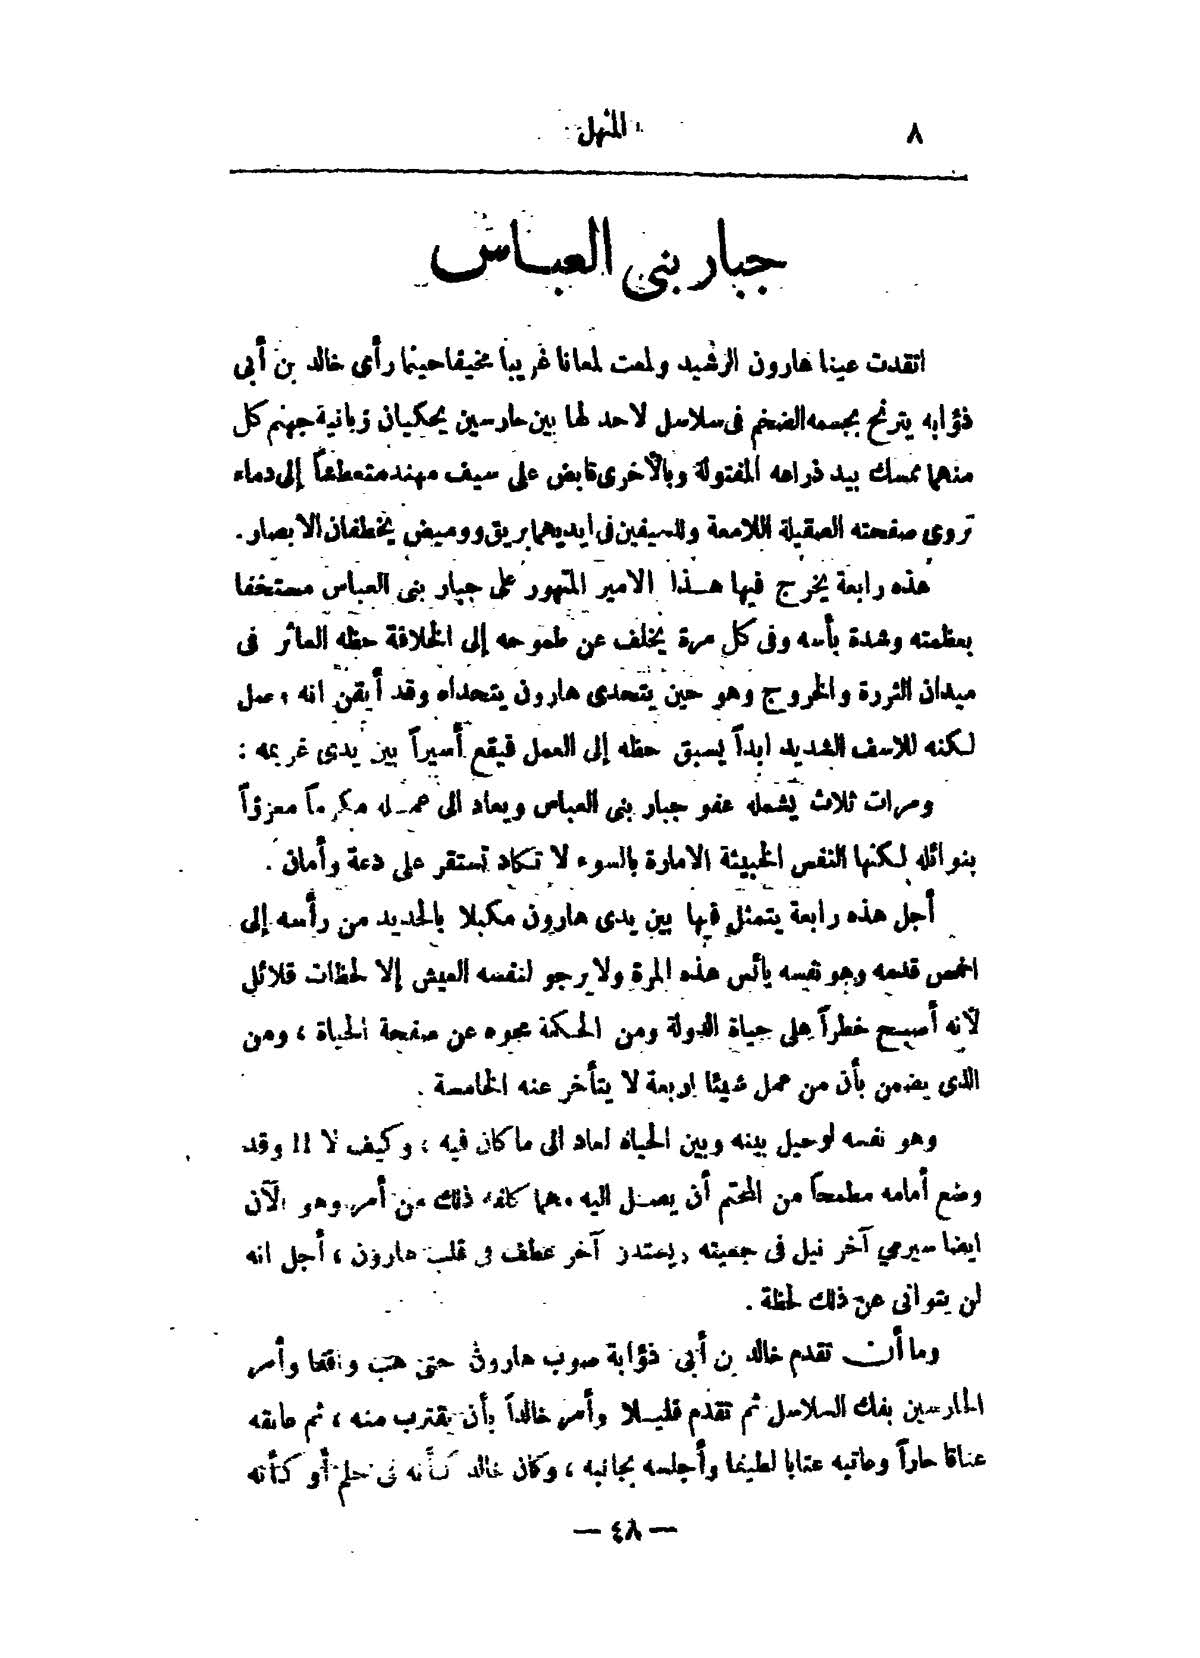 ٨
المنهل
جبار بنى العباس
اتقدت عينا هارون الرشيد ولمعت لمعانا غريبا مخيفا حينما رأى خالد بن أبى
ذؤابه يترنح بجسمه الضخم فى سلاسل لاحد لها بين حارسين يحكيان زبانية جهنم كل
منهما ممسك بيد ذراعه المفتولة وبالاخرى قابض على سيف مهند متعطشاً إلى دماء
تروى صفحته الصقيلة اللامعة وللسيفين فى ايديهما بريق ووميض يخطفان الابصار.
هذه رابعة يخرج فيها هذا الامير المتهور على جبار بنى العباس مستخفا
بعظمته وشدة بأسه وفى كل مرة يخلف عن طموحه إلى الخلافة حظه العاثر فى
ميدان الثورة والخروج وهو حين يتحدى هارون يتحداه وقد أيقن انه عمل
لكنه للاسف الشديد ابداً يسبق حظه إلى العمل فيقع أسيراً بين يدى غريمه :
ومرات ثلاث يشمله عفو جبار بنى العباس ويعاد الى عمله مكرماً معززاً
بنوائله لكنها النفس الخبيثة الامارة بالسوء لا تكاد تستقر على دعة وأمان .
أجل هذه رابعة يتمثل فيها بين يدى هارون مكبلا بالحديد من رأسه إلى
اخمص قدمه وهو نفسه يائس هذه المرة ولا يرجو لنفسه العيش إلا لحظات قلائل
لانه أصبح خطراً على حياة الدولة ومن الحكمة محوه عن صفحة الحياة ، ومن
الذى يضمن بأن من عمل شيئا اربعة لا يتأخر عنه الخامسة .
وهو نفسه لو حيل بينه وبين الحياة لعاد الى ما كان فيه ، وكيف لا !! وقد
وضع أمامه مطمحاً من المحتم أن يصل اليه مهما كلفه ذلك من أمر وهو الآن
ايضا سيرمي آخر نبل فى جعبته ويعتصر آخر عطف فى قلب هارون ، أجل انه
لن يتوانى عن ذلك لحظة .
وما أن تقدم خالد بن أبى ذؤابة صوب هارون حتى هب واقفا وأمر
الحارسين بفك السلاسل ثم تقدم قليلا وأمر خالداً بأن يقترب منه ، ثم عانقه
عناقا حاراً وعاتبه عتابا لطيفا وأجلسه بجانبه ، وكان خالد كأنه فى حلم أو كأنه
— ٤٨ —